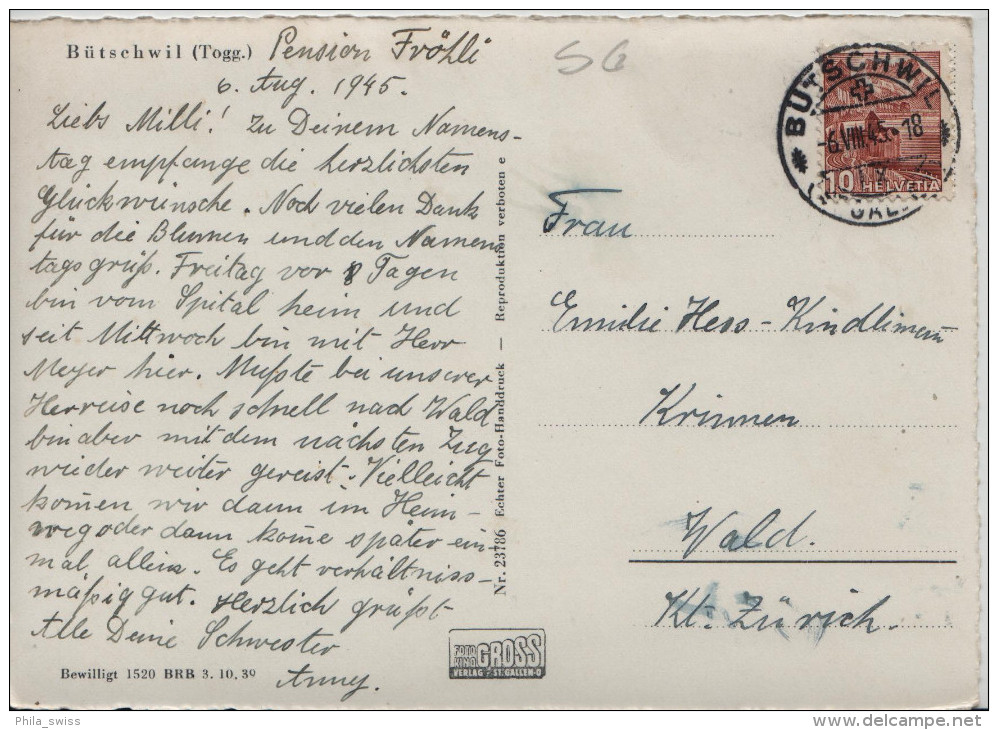 Bütschwil (Togg.) Pension Fröhli
6. Aug. 1945.
Liebs Milli! Zu Deinem Namens-
tag empfange die herzlichsten
Glückwünsche. Noch vielen Dank
für die Blumen und den Namens
tagsgrüß. Freitag vor 8 Tagen
bin vom Spital heim und
seit Mittwoch bin mit Herr
Meyer hier. Mußte bei unserer
Herreise noch schnell nach Wald
bin aber mit dem nächsten Zug
wieder weiter gereist. Vielleicht
kom̄en wir dann im Heim-
weg oder dann kom̄e später ein-
mal allein. Es geht verhältniss-
mäßig gut. Herzlich grüßt
Alle Deine Schwester
Anny.
Bewilligt 1520 BRB 3. 10. 39
Nr. 23786 Echter Foto-Handdruck — Reproduktion verboten e
FOTO KINO GROSS
VERLAG ST. GALLEN-O
SG
BÜTSCHWIL
-6.VIII.45. 18
10 HELVETIA
Frau
Emilie Hess-Kindlimann
Krinnen
Wald.
Kt. Zürich.
Phila_swiss
www.delcampe.net